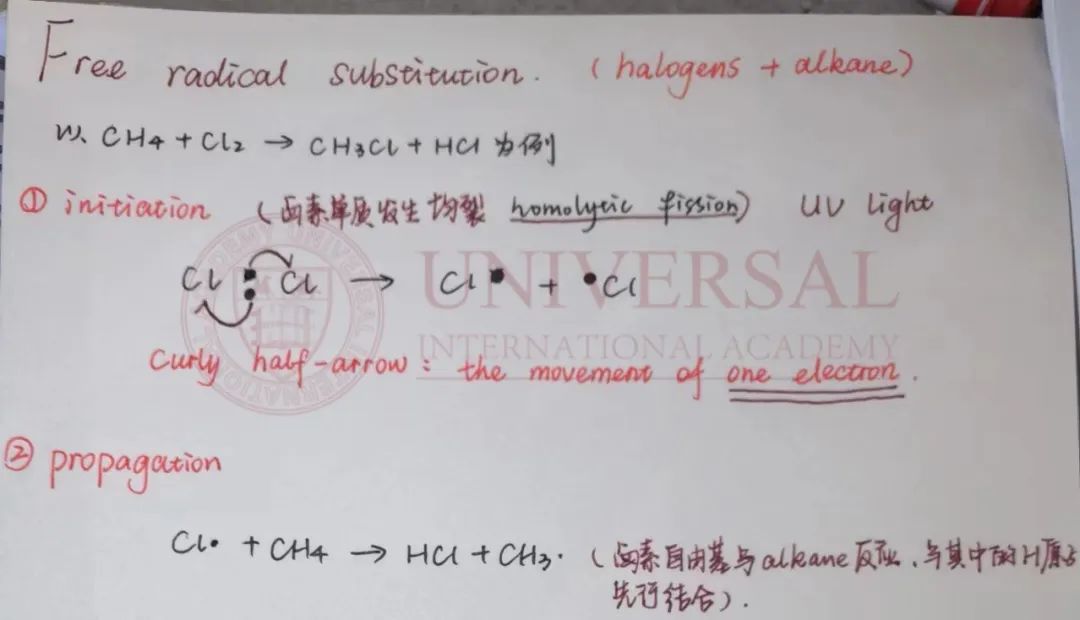 Free radical substitution. (halogens + alkane)
以 CH4 + Cl2 → CH3Cl + HCl 为例
① initiation (卤素单质发生均裂 homolytic fission) UV light
Cl : Cl → Cl• + •Cl
UNIVERSAL
INTERNATIONAL ACADEMY
Curly half-arrow : the movement of one electron.
② propagation
Cl• + CH4 → HCl + CH3• (卤素自由基与alkane反应,与其中的H原子
先行结合).